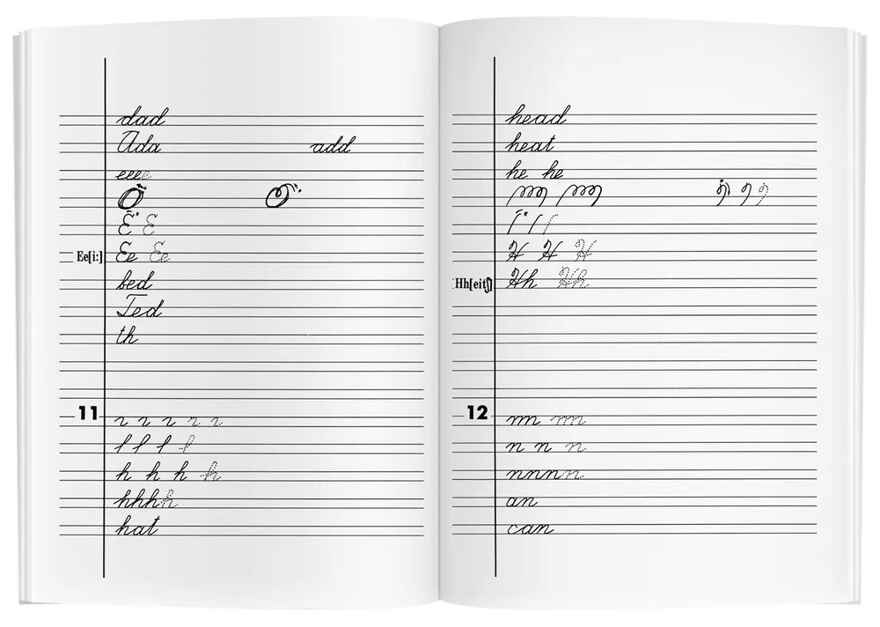 dad
Ada add
eeee
E E
Ee[i:] Ee Ee
bed
Ted
th
11
h h h h
hhhh
hat
head
heat
he he
H H H
Hh[eitʃ] Hh Hh
12
n n n
nnnn
an
can